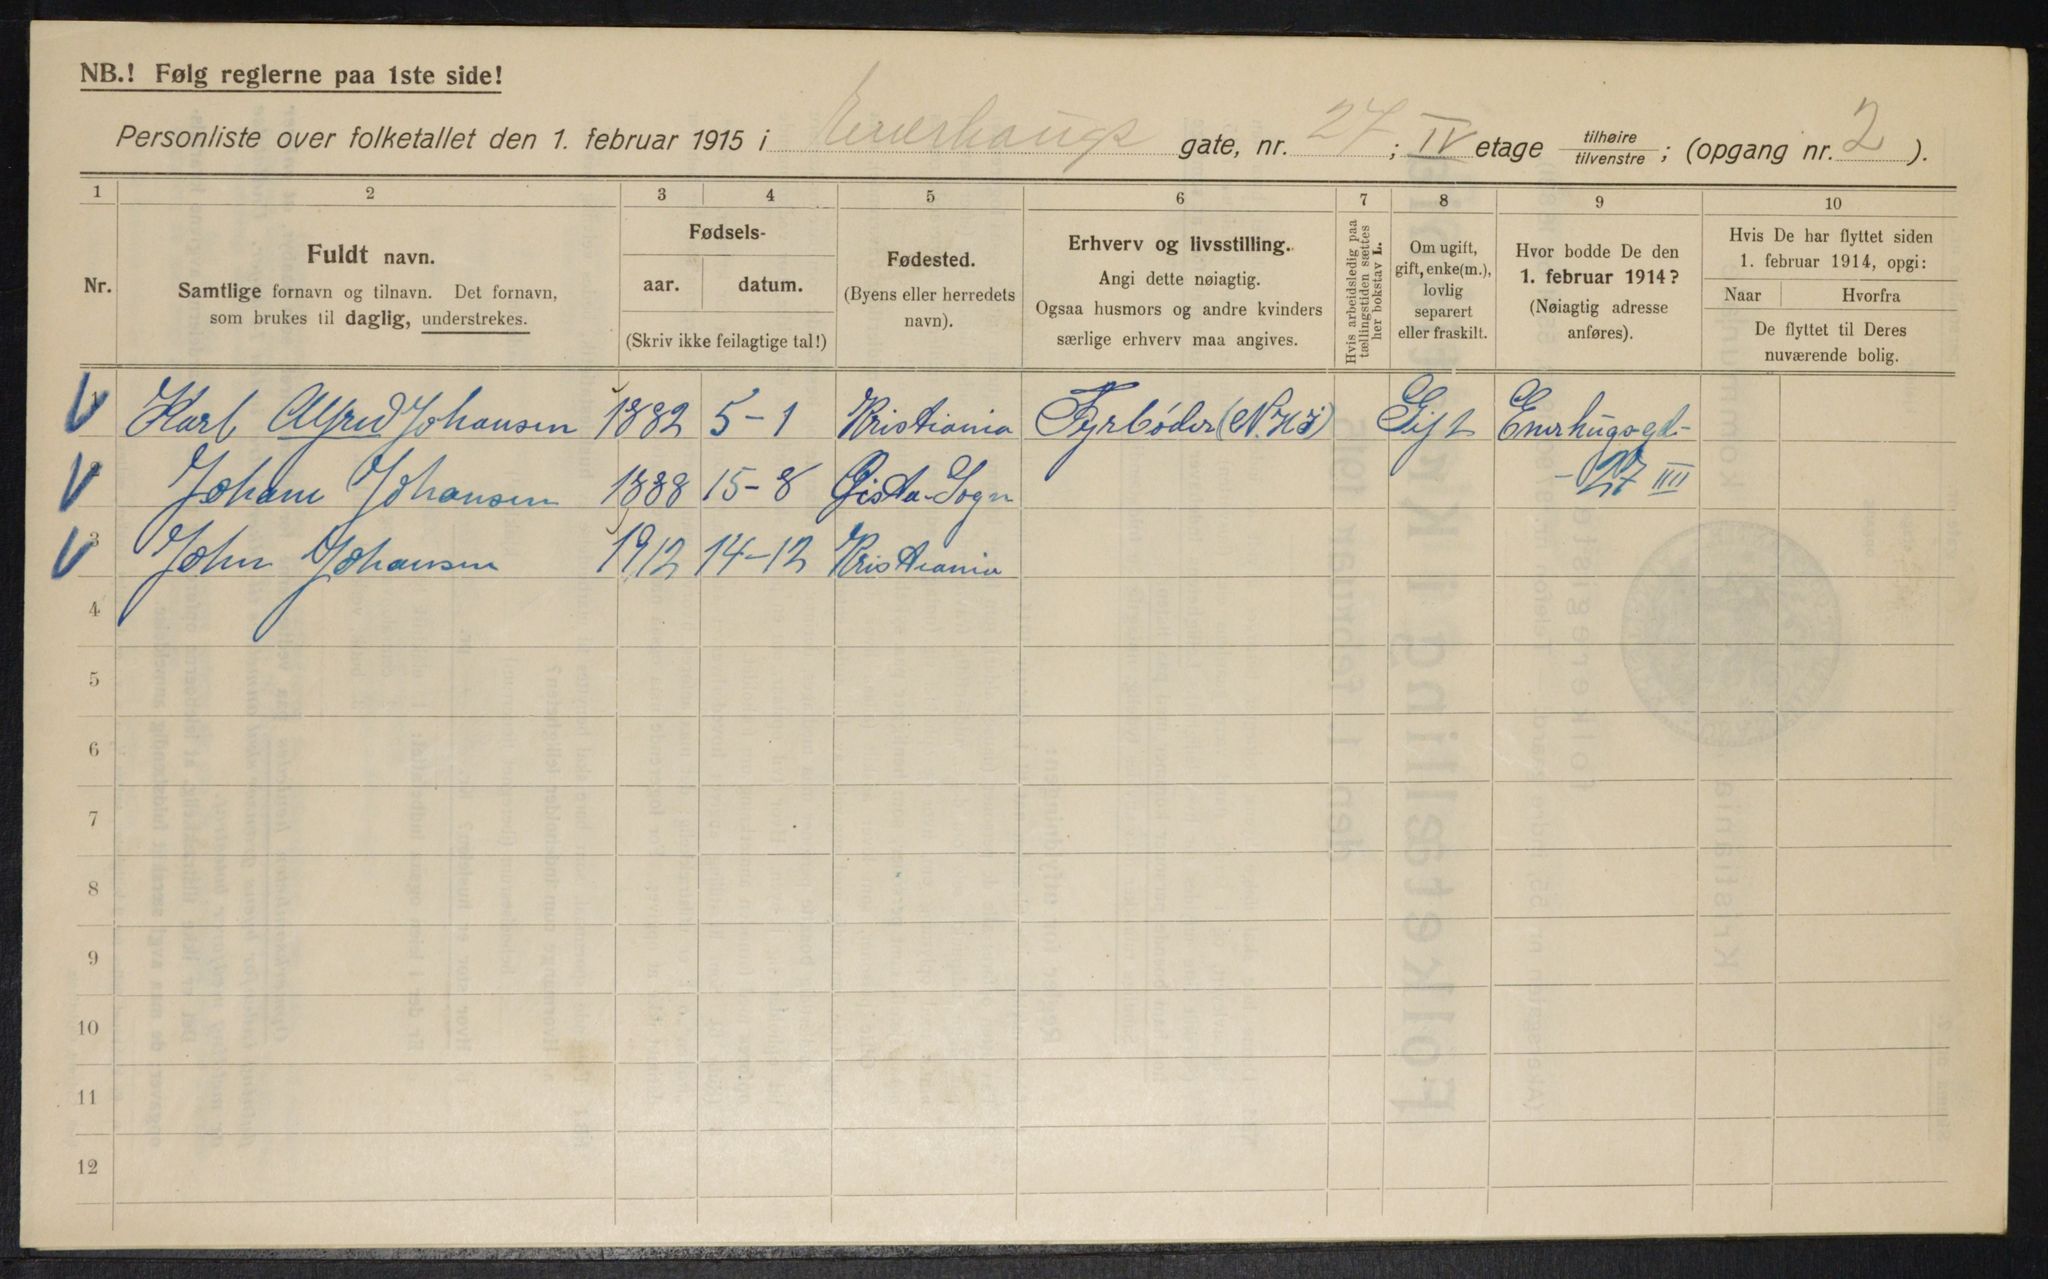 NB.! Følg reglerne paa 1ste side!
Personliste over folketallet den 1. februar 1915 i Enerhaugs gate, nr. 27 ; IV etage tilhøire/tilvenstre ; (opgang nr. 2 ).
1 2 3 4 5 6 7 8 9 10
Nr.
Fuldt navn.
Samtlige fornavn og tilnavn. Det fornavn,
som brukes til daglig, understrekes.
Fødsels-
aar. datum.
(Skriv ikke feilagtige tal!)
Fødested.
(Byens eller herredets
navn).
Erhverv og livsstilling.
Angi dette nøiagtig.
Ogsaa husmors og andre kvinders
særlige erhverv maa angives.
Hvis arbeidsledig paa
tællingstiden sættes
her bokstav L.
Om ugift,
gift, enke(m.),
lovlig
separert
eller fraskilt.
Hvor bodde De den
1. februar 1914?
(Nøiagtig adresse
anføres).
Hvis De har flyttet siden
1. februar 1914, opgi:
Naar Hvorfra
De flyttet til Deres
nuværende bolig.
1 Karl Alfred Johansen 1882 5-1 Kristiania Fyrbøder Gift Enerhugsgd-
Johane Johansen 1888 15-8 Sogn - 27 IIII
3 John Johansen 1912 14-12 Kristiania
4
5
6
7
8
9
10
11
12